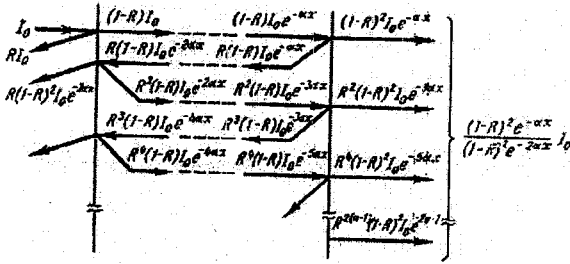 I₀ (1-R)I₀ (1-R)I₀e^{-αx} (1-R)²I₀e^{-αx}
RI₀ R(1-R)I₀e^{-2αx} R(1-R)I₀e^{-αx}
R(1-R)²I₀e^{-2αx} R²(1-R)I₀e^{-2αx} R²(1-R)I₀e^{-3αx} R²(1-R)²I₀e^{-3αx}
R³(1-R)I₀e^{-4αx} R³(1-R)I₀e^{-3αx}
R⁴(1-R)I₀e^{-4αx} R⁴(1-R)I₀e^{-5αx} R⁴(1-R)²I₀e^{-5αx}
(1-R)²e^{-αx}
(1-R)²e^{-2αx} I₀